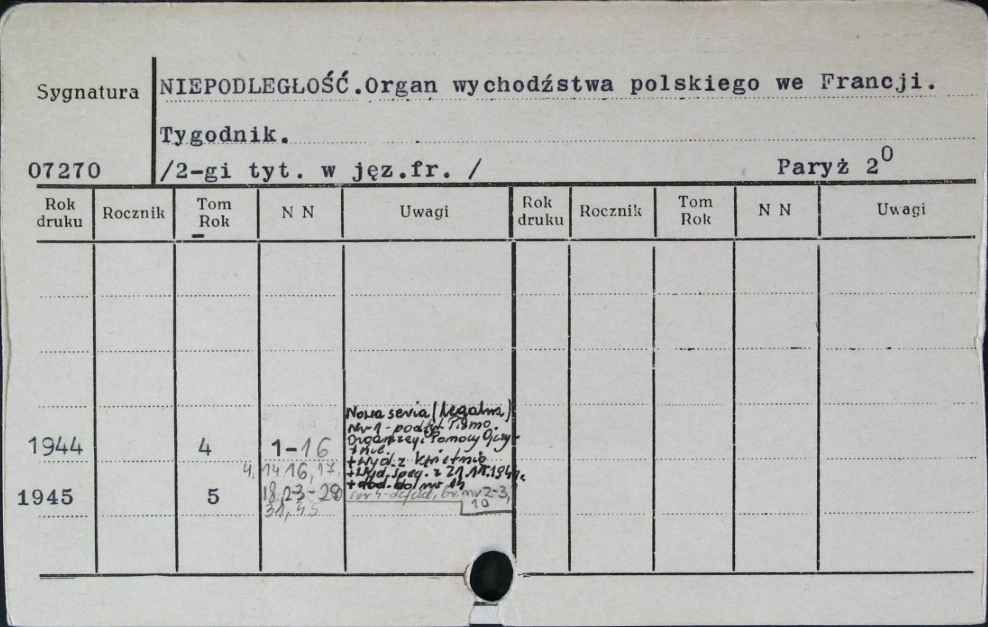 Sygnatura
NIEPODLEGŁOŚĆ.Organ wychodźstwa polskiego we Francji.
Tygodnik.
07270
/2-gi tyt. w jęz.fr. /
Paryż 2⁰
Rok druku Rocznik Tom Rok N N Uwagi Rok druku Rocznik Tom Rok N N Uwagi
Nowa seria (Legalna)
Nr-1 - Pismo
Organizacji Pomocy Ojczy-
źnie.
1944 4 1-16
+ wyd. z kwietnia
4, 14 16, 17
+ wyd. spec. z 1944r.
+ dod. do nr 14
1945 5 18, 23-28
nr 2-3,
10
31, 45